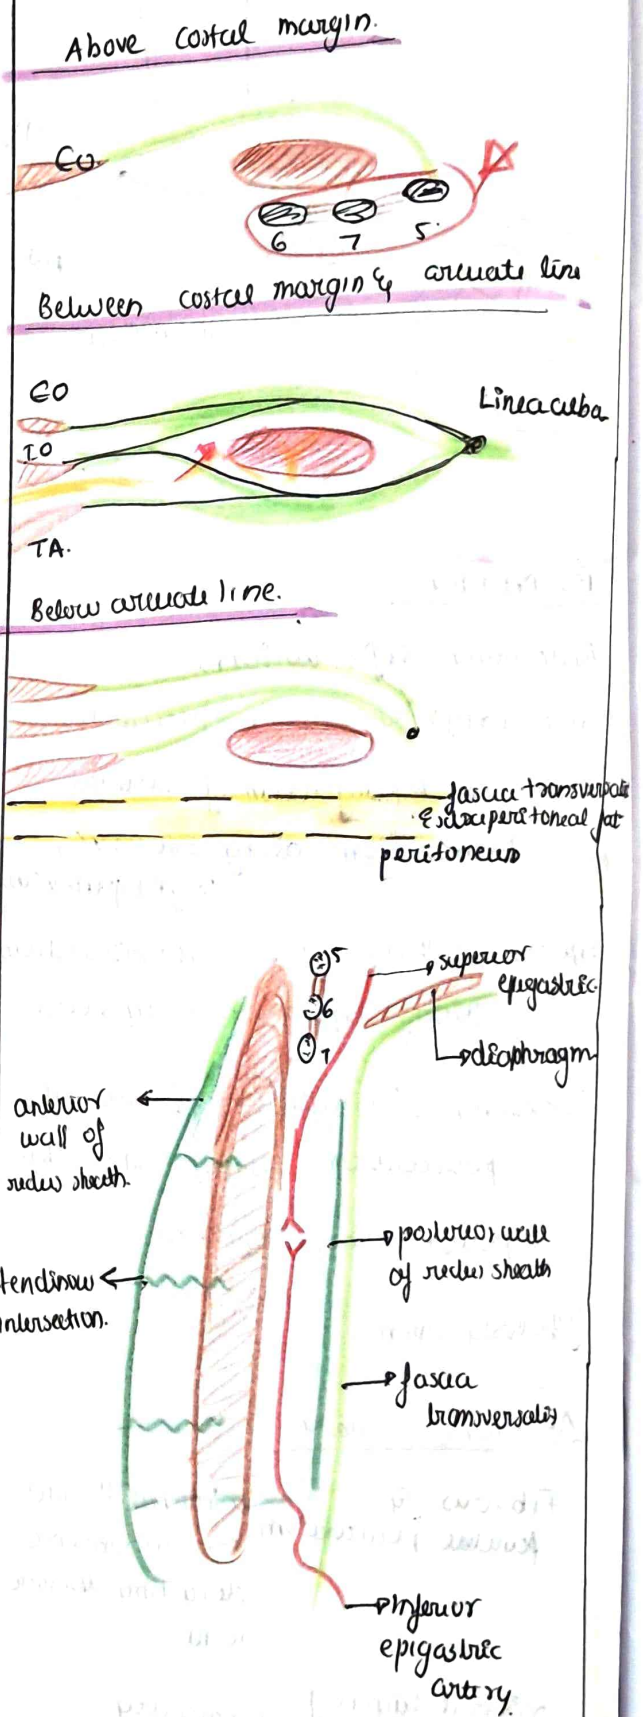 Above costal margin.
EO
6 7 5
Between costal margin & arcuate line
EO
Linea alba
IO
TA.
Below arcuate line.
fascia transversalis
Extraperitoneal fat
peritoneum
5
superior
epigastric
6
7
diaphragm
anterior
wall of
rectus sheath.
posterior wall
of rectus sheath
tendinous
intersection.
fascia
transversalis
Inferior
epigastric
artery.